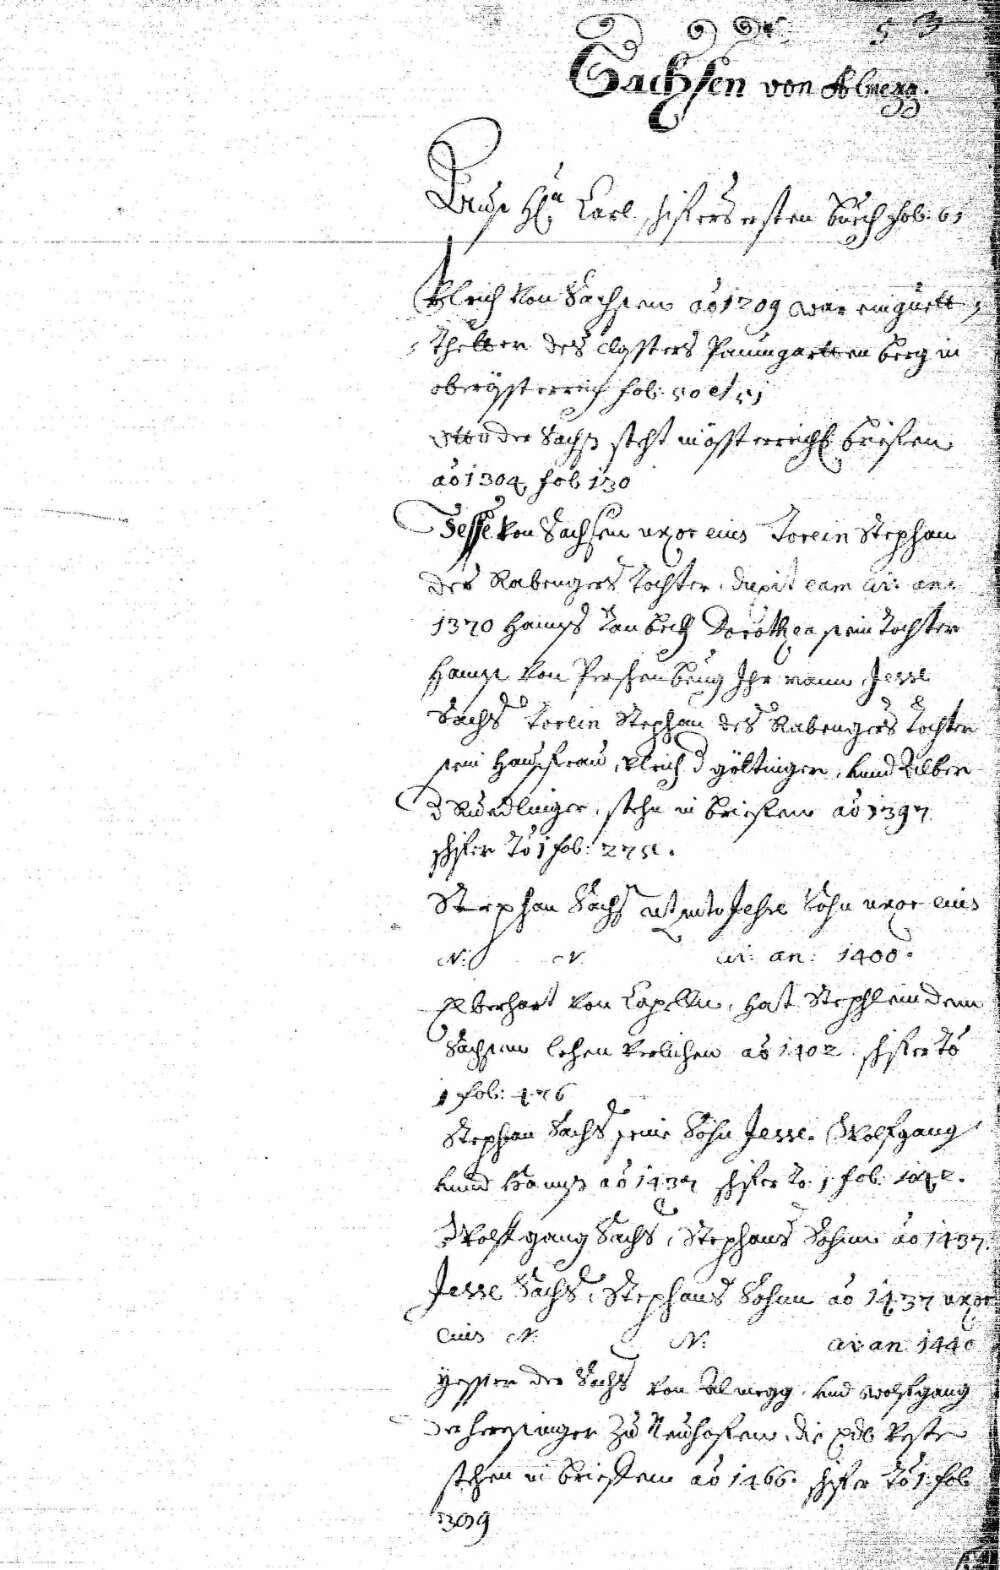 53
Sachsen von Almegg.
Auß H. Carl schifers ersten buech fol: 61
Ulrich von Sachsen ao 1209 war ein guett
thetter des closters Paumgarttenberg in
oberössterreich fol: 50 et 51
Otto der Sachs steht in össterreich: brieffen
ao 1304 fol 130
Jesse von Sachsen uxor eius Torlin Stephan
des Rabengers Tochter. duxit eam cir: an:
1370 Hanns Tanbech Dorothea sein tochter
Hanns von Perschenberg Ihr mann, Jesse
Sachs Torlin Stephan des Rabengers Tochter
sein Haussfrau, Ulrich d göltinger, unnd Alber
d Ruedlinger, stehn in brieffen ao 1397.
schifer To 1 fol: 275.
Stephan Sachs Jesse Sohn uxor eius
N: N. cir: an: 1400.
Eberhart von Capellen, hat Stephlein dem
Sachsen lehen verlichen ao 1402 schifer To
1 fol: 476
Stephan Sachs seine Söhn Jesse. Wolfgang
unnd Hanns ao 1437 schifer To: 1 fol.
Wolfgang Sachs, Stephans Sohnn ao 1437.
Jesse Sachs, Stephans Sohnn ao 1437 uxor
eius N. N: cir an 1440
Jessier der Sachs von Almegg. und Wolfgang
der herzinger zu Neuhoffen, die Edl Vesste
stehen in brieffen ao 1466. schifer To 1 fol
309